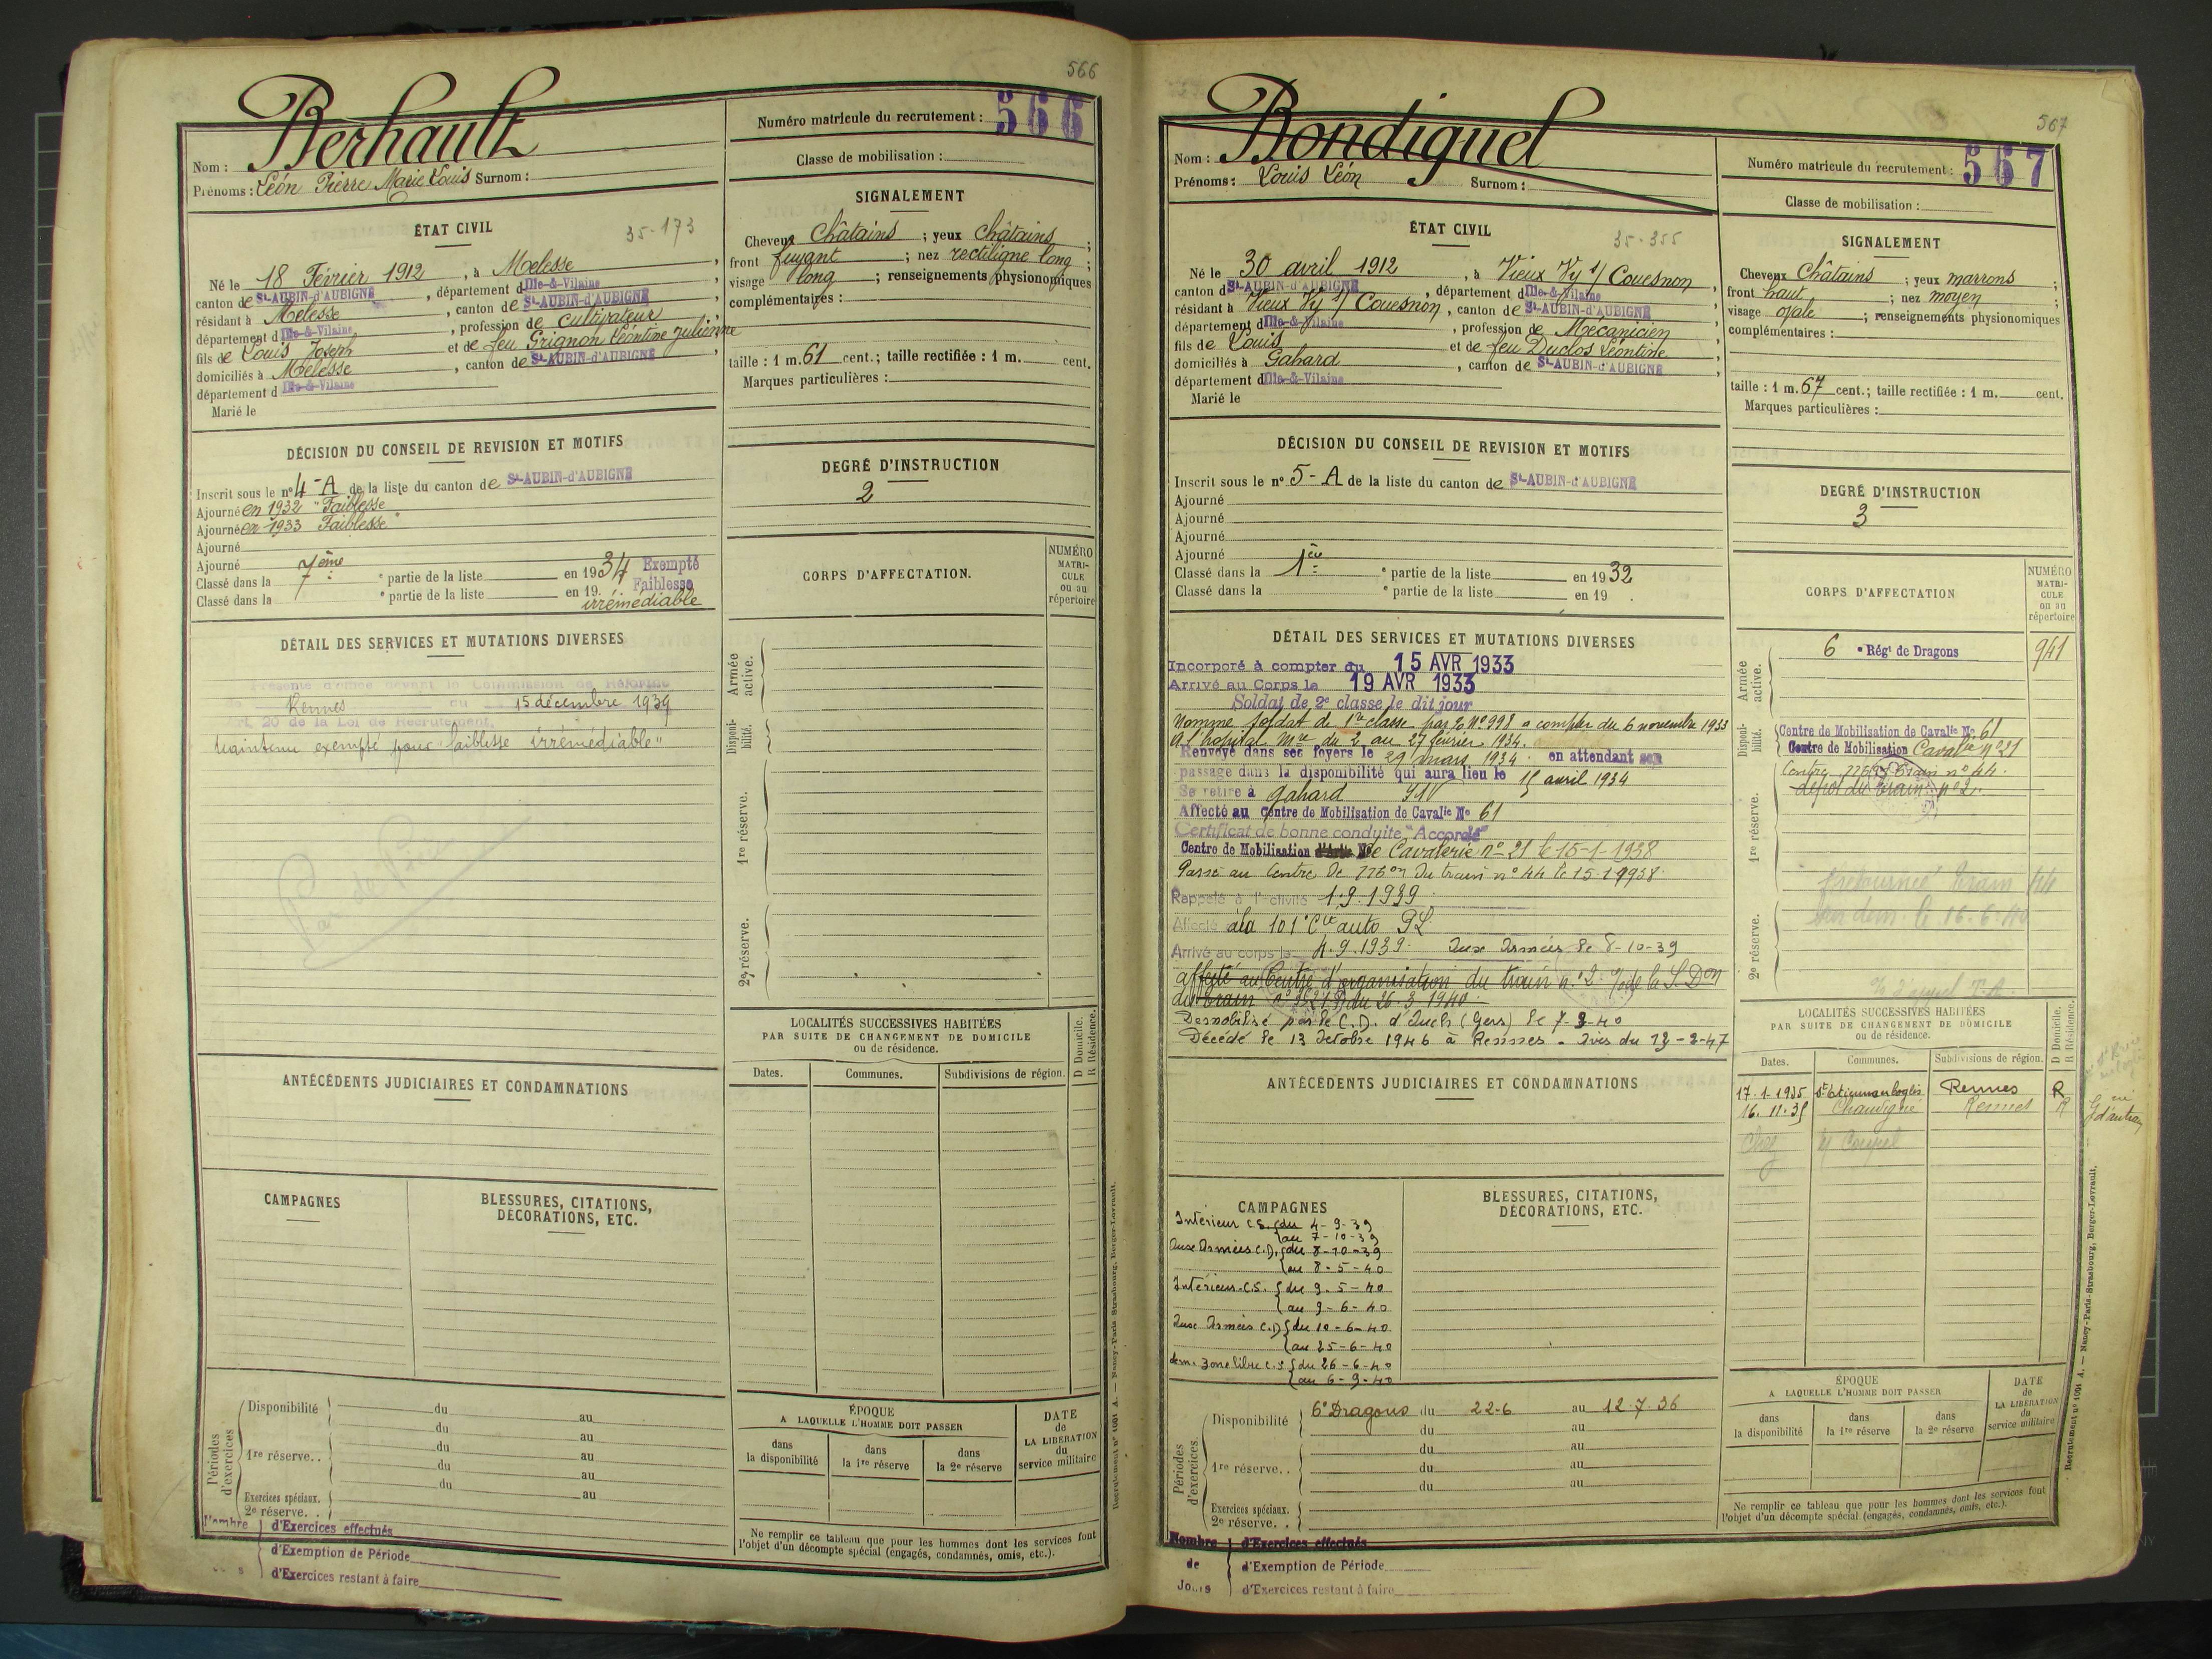 566
Nom : Berhault
Prénoms : Léon Pierre Marie Louis Surnom :
Numéro matricule du recrutement : 566
Classe de mobilisation :
ÉTAT CIVIL
35-173
Né le 18 Février 1912, à Melesse,
canton de St-AUBIN-d'AUBIGNÉ, département d Ille-&-Vilaine,
résidant à Melesse, canton de St-AUBIN-d'AUBIGNÉ,
département d Ille-&-Vilaine, profession de cultivateur,
fils de Louis Joseph et de feu Grignon Léontine Julienne
domiciliés à Melesse, canton de St-AUBIN-d'AUBIGNÉ,
département d Ille-&-Vilaine
Marié le
SIGNALEMENT
Cheveux Châtains ; yeux châtains ;
front fuyant ; nez rectiligne long ;
visage long ; renseignements physionomiques
complémentaires :
taille : 1 m. 61 cent. ; taille rectifiée : 1 m. cent.
Marques particulières :
DÉCISION DU CONSEIL DE REVISION ET MOTIFS
Inscrit sous le n° 4-A de la liste du canton de St-AUBIN-d'AUBIGNÉ
Ajourné en 1932 "Faiblesse"
Ajourné en 1933 "Faiblesse"
Ajourné
Ajourné
Classé dans la 7ème e partie de la liste en 1934 Exempté
Classé dans la e partie de la liste en 19 . Faiblesse
irrémédiable
DEGRÉ D'INSTRUCTION
2
CORPS D'AFFECTATION.
NUMÉRO MATRICULE ou au répertoire
DÉTAIL DES SERVICES ET MUTATIONS DIVERSES
Présenté d'office devant la Commission de Réforme
de Rennes du 15 décembre 1939
Art. 20 de la Loi de Recrutement.
Maintenu exempté pour "faiblesse irrémédiable"
Armée active.
Disponibilité.
1re réserve.
2e réserve.
LOCALITÉS SUCCESSIVES HABITÉES
PAR SUITE DE CHANGEMENT DE DOMICILE
ou de résidence.
D Domicile.
R Résidence.
Dates.
Communes.
Subdivisions de région.
ANTÉCÉDENTS JUDICIAIRES ET CONDAMNATIONS
CAMPAGNES
BLESSURES, CITATIONS,
DÉCORATIONS, ETC.
Périodes d'exercices
Disponibilité du au
du au
1re réserve. . du au
du au
du au
Exercices spéciaux.
2e réserve. .
Nombre d'Exercices effectués
d'Exemption de Période
d'Exercices restant à faire
ÉPOQUE
A LAQUELLE L'HOMME DOIT PASSER
dans la disponibilité
dans la 1re réserve
dans la 2e réserve
DATE de LA LIBÉRATION du service militaire
Ne remplir ce tableau que pour les hommes dont les services font
l'objet d'un décompte spécial (engagés, condamnés, omis, etc.).
Recrutement n° 1091 A. — Nancy-Paris-Strasbourg, Berger-Levrault.
567
Nom : Bondiguel
Prénoms : Louis Léon Surnom :
Numéro matricule du recrutement : 567
Classe de mobilisation :
ÉTAT CIVIL
35-355
Né le 30 avril 1912, à Vieux Vy s/ Couesnon,
canton d St-AUBIN-d'AUBIGNÉ, département d Ille-&-Vilaine,
résidant à Vieux Vy s/ Couesnon, canton de St-AUBIN-d'AUBIGNÉ,
département d Ille-&-Vilaine, profession de Mécanicien,
fils de Louis et de feu Duclos Léontine
domiciliés à Gahard, canton de St-AUBIN-d'AUBIGNÉ,
département d Ille-&-Vilaine
Marié le
SIGNALEMENT
Cheveux Châtains ; yeux marrons ;
front haut ; nez moyen ;
visage ovale ; renseignements physionomiques
complémentaires :
taille : 1 m. 67 cent. ; taille rectifiée : 1 m. cent.
Marques particulières :
DÉCISION DU CONSEIL DE REVISION ET MOTIFS
Inscrit sous le n° 5-A de la liste du canton de St-AUBIN-d'AUBIGNÉ
Ajourné
Ajourné
Ajourné
Ajourné
Classé dans la 1ère e partie de la liste en 1932
Classé dans la e partie de la liste en 19 .
DEGRÉ D'INSTRUCTION
3
CORPS D'AFFECTATION
NUMÉRO MATRICULE ou au répertoire
DÉTAIL DES SERVICES ET MUTATIONS DIVERSES
Incorporé à compter du 15 AVR 1933
Arrivé au Corps le 19 AVR 1933
Soldat de 2e classe le dit jour
Nommé soldat de 1re classe par O N° 998 a compter du 6 novembre 1933
A l'hopital Mre du 2 au 27 février 1934.
Renvoyé dans ses foyers le 29 mars 1934 en attendant son
passage dans la disponibilité qui aura lieu le 15 avril 1934
Se retire à Gahard I&V
Affecté au Centre de Mobilisation de Cavalie No 61
Certificat de bonne conduite "Accordé"
Centre de Mobilisation de Cavalerie n° 21 le 15-1-1938
Passé au Centre de Mon du train n° 44 le 15-1-1938
Rappelé à l'activité 1.9.1939
Affecté à la 101e Cie auto PL
Arrivé au corps le 4.9.1939. Aux Armées le 8-10-39
affecté au Centre d'organisation du train n° 2 de la S. Don
du train du 26-3-1940
Démobilisé par le C.D. d'Auch (Gers) le 7-9-40
Décédé le 13 octobre 1946 à Rennes. Avis du 13-2-47
Armée active.
6 e Régt de Dragons 941
Disponibilité.
Centre de Mobilisation de Cavalie No 61
Centre de Mobilisation Cavalie n° 21
1re réserve.
Centre Mon Train n° 44.
dépôt du train n° 2.
train 44
le 16-6-40
2e réserve.
LOCALITÉS SUCCESSIVES HABITÉES
PAR SUITE DE CHANGEMENT DE DOMICILE
ou de résidence.
D Domicile.
R Résidence.
Dates. Communes. Subdivisions de région.
17-1-1935 St Etienne en Coglès Rennes R
16.11.35 Chauvigné Rennes R
Chez
ANTÉCÉDENTS JUDICIAIRES ET CONDAMNATIONS
CAMPAGNES
Intérieur C.S. du 4-9-39
au 7-10-39
Aux Armées C.D. du 8-10-39
au 8-5-40
Intérieur C.S. du 9-5-40
au 9-6-40
Aux Armées C.D du 10-6-40
au 25-6-40
dem. zone libre C.S. du 26-6-40
au 6-9-40
BLESSURES, CITATIONS,
DÉCORATIONS, ETC.
Périodes d'exercices.
Disponibilité 6e Dragons du 22-6 au 12-7-36
du au
1re réserve. . du au
du au
du au
Exercices spéciaux.
2e réserve. .
Nombre de Jours d'Exercices effectués
d'Exemption de Période
d'Exercices restant à faire
ÉPOQUE
A LAQUELLE L'HOMME DOIT PASSER
dans la disponibilité
dans la 1re réserve
dans la 2e réserve
DATE de LA LIBÉRATION du service militaire
Ne remplir ce tableau que pour les hommes dont les services font
l'objet d'un décompte spécial (engagés, condamnés, omis, etc.).
Recrutement n° 1091 A. — Nancy-Paris-Strasbourg, Berger-Levrault.